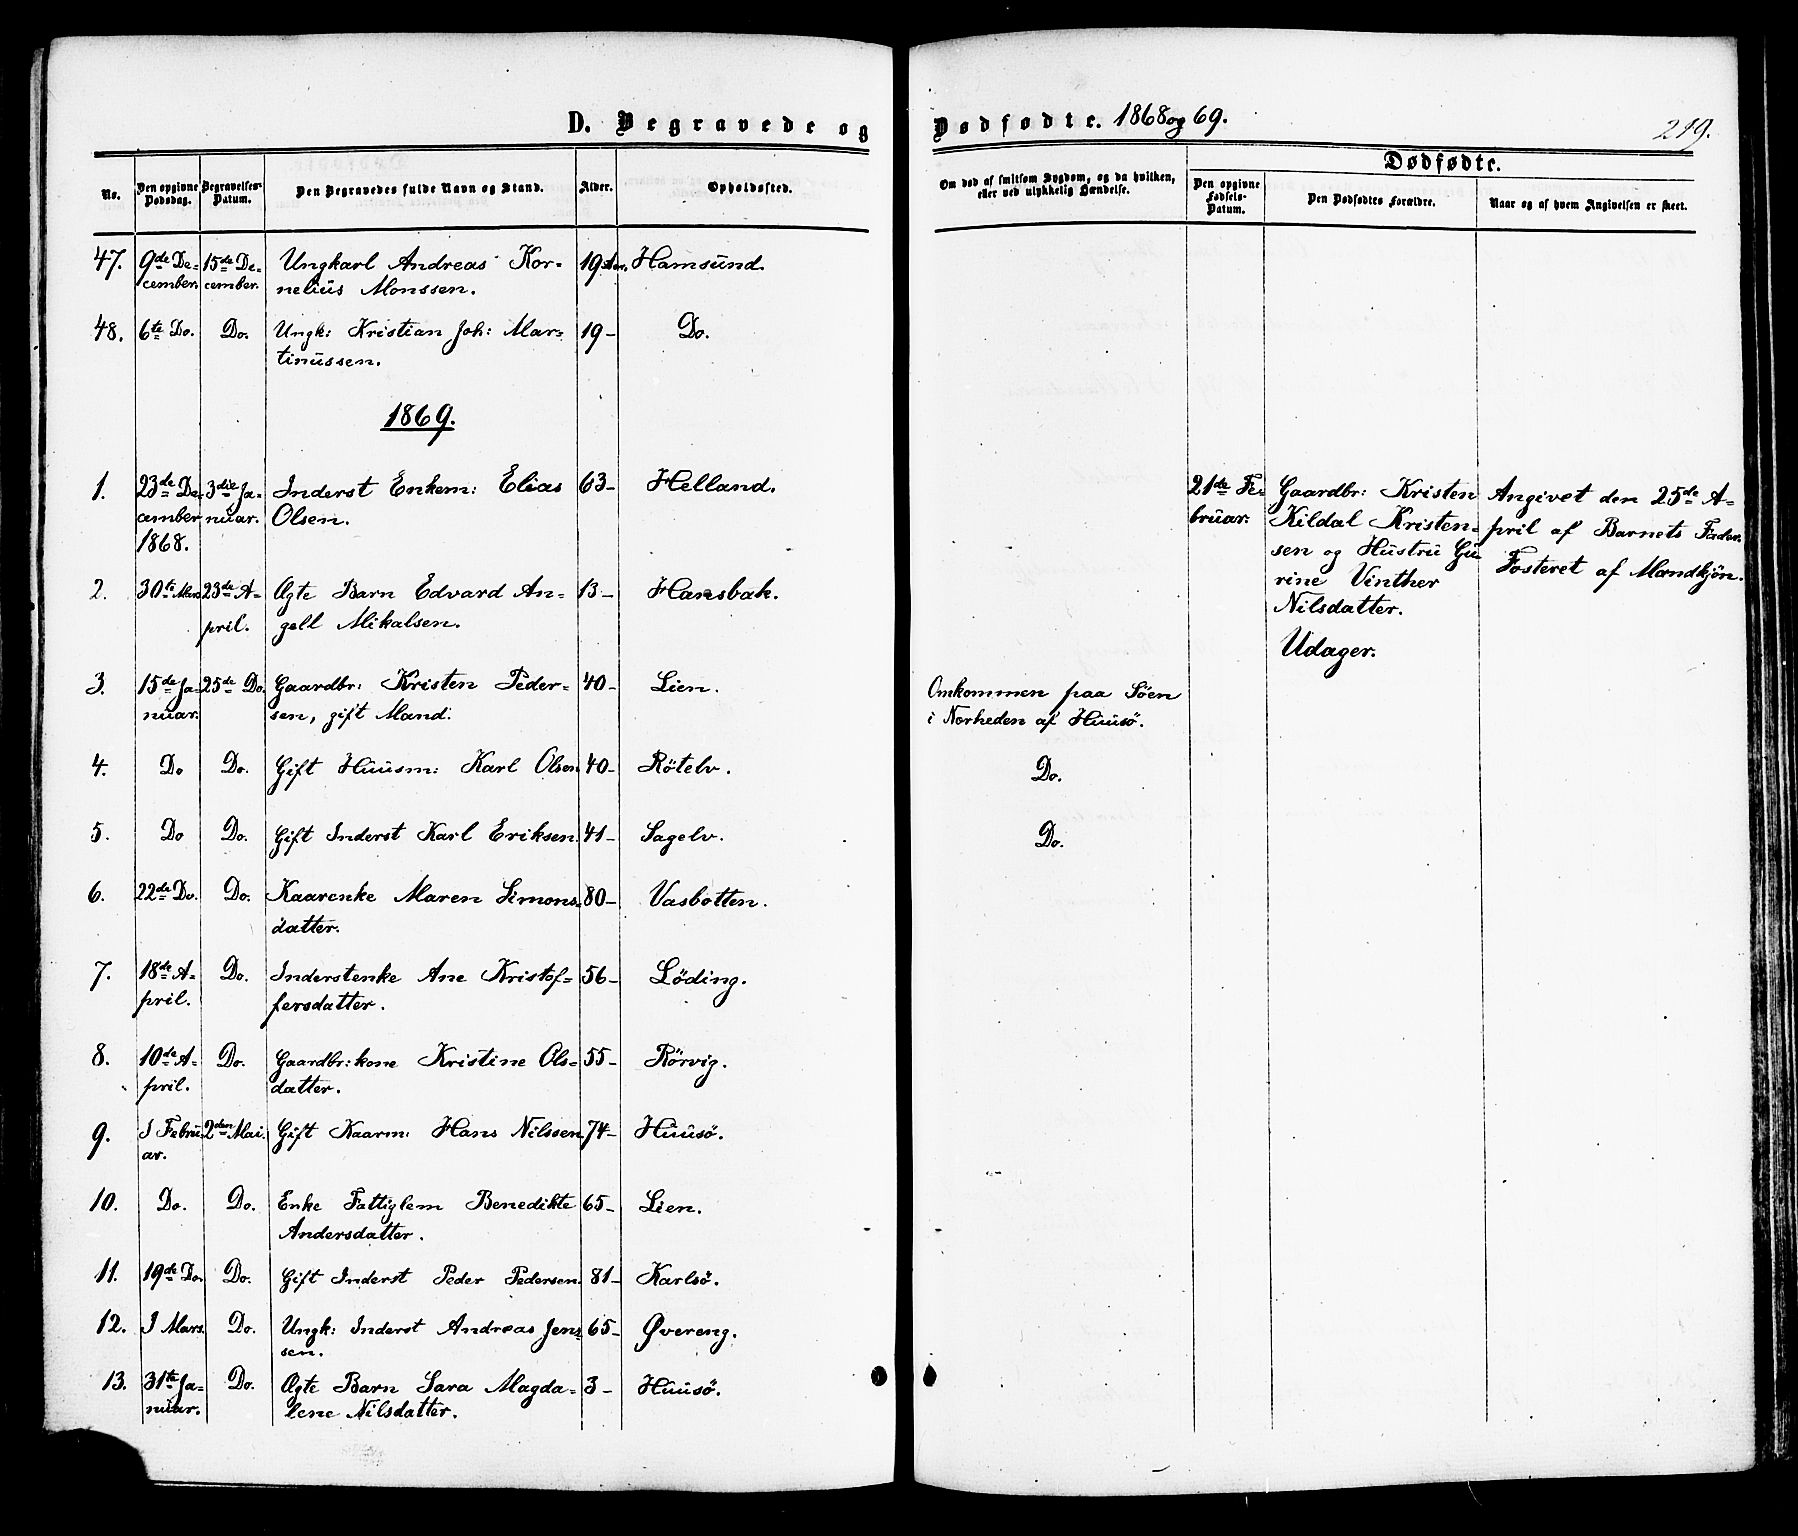 D. Begravede og
Dødfødte. 1868 og 69.
219.
No.
Den opgivne Dødsdag.
Begravelses-Datum.
Den Begravedes fulde Navn og Stand.
Alder.
Opholdssted.
Om død af smitsom Sygdom, og da hvilken,
eller ved ulykkelig Hændelse.
Dødfødte.
Den opgivne Fødsels-Datum.
Den Dødfødtes Forældre.
Naar og af hvem Angivelsen er skeet.
47. 9de De- 15de De- Ungkarl Andreas Kor- 19 Hamsund.
cember. cember. nelius Monssen.
48. 6te Do. Do. Ungk: Kristian Joh: Mar- 19- Do.
tinussen.
1869.
1. 23de De- 3die Ja- Inderst Enkem: Elias 63- Helland.
cember nuar. Olsen.
1868.
2. 30te Mars 23de A- Ægte Barn Edvard An- 13- Hansbak.
pril. gell Mikalsen.
3. 15de Ja- 25de Do. Gaardbr: Kristen Peder- 40- Lien.
nuar. sen, gift Mand.
4. Do Do. Gift Huusm: Karl Olsen 40- Rötelv.
5. Do Do. Gift Inderst Karl Eriksen. 41- Sagelv.
6. 22de Do. Do. Kaarenke Maren Simons- 80- Vasbotten.
datter.
7. 18de A- Do. Inderstenke Ane Kristof- 56- Löding.
pril. fersdatter.
8. 10de A- Do. Gaardbr:kone Kristine Ols- 55- Rörvig.
pril. datter.
9. I Febru- 2den Mai. Gift Kaarm: Hans Nilssen 74- Huusö.
ar.
10. Do. Do. Enke Fattiglem Benedikte 65- Lien.
Andersdatter.
11. 19de Do. Do. Gift Inderst Peder Pedersen. 81- Karlsö.
12. I Mars. Do. Ungk: Inderst Andreas Jens- 65- Øvereng.
sen.
13. 31te Ja- Do. Ægte Barn Sara Magda- 3- Huusö.
nuar. lene Nilsdatter.
Omkommen paa Söen
i Norheden af Huusö.
Do.
Do.
21de Fe-
bruar.
Gaardbr: Kristen
Kildal Kristen-
sen og Hustru Gu-
rine Vinther
Nilsdatter.
Udager.
Angivet den 25de A-
pril af Barnets Fader.
Fosteret af Mandkjön.